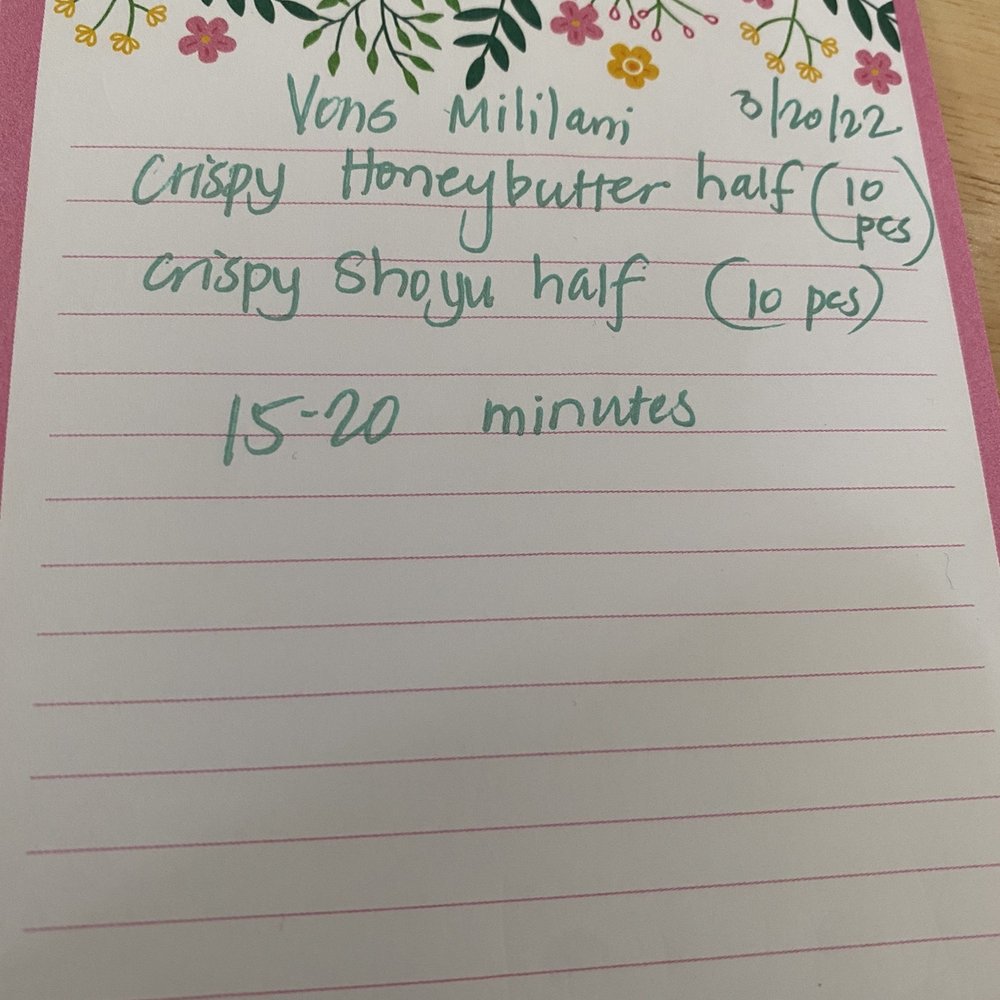 Vons Mililani 3/20/22
Crispy Honeybutter half (10 pcs)
crispy Shoyu half (10 pcs)
15-20 minutes